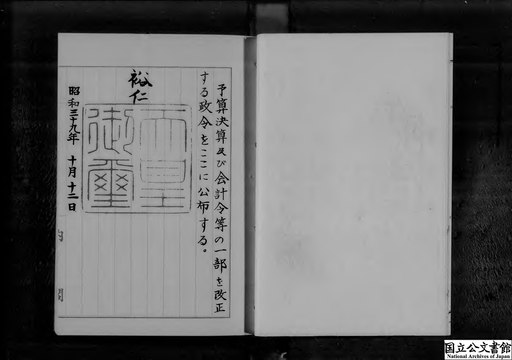 予算決算及び会計令等の一部を改正
する政令をここに公布する。
裕仁
天皇
御璽
昭和三十九年 十月十二日
国立公文書館
National Archives of Japan